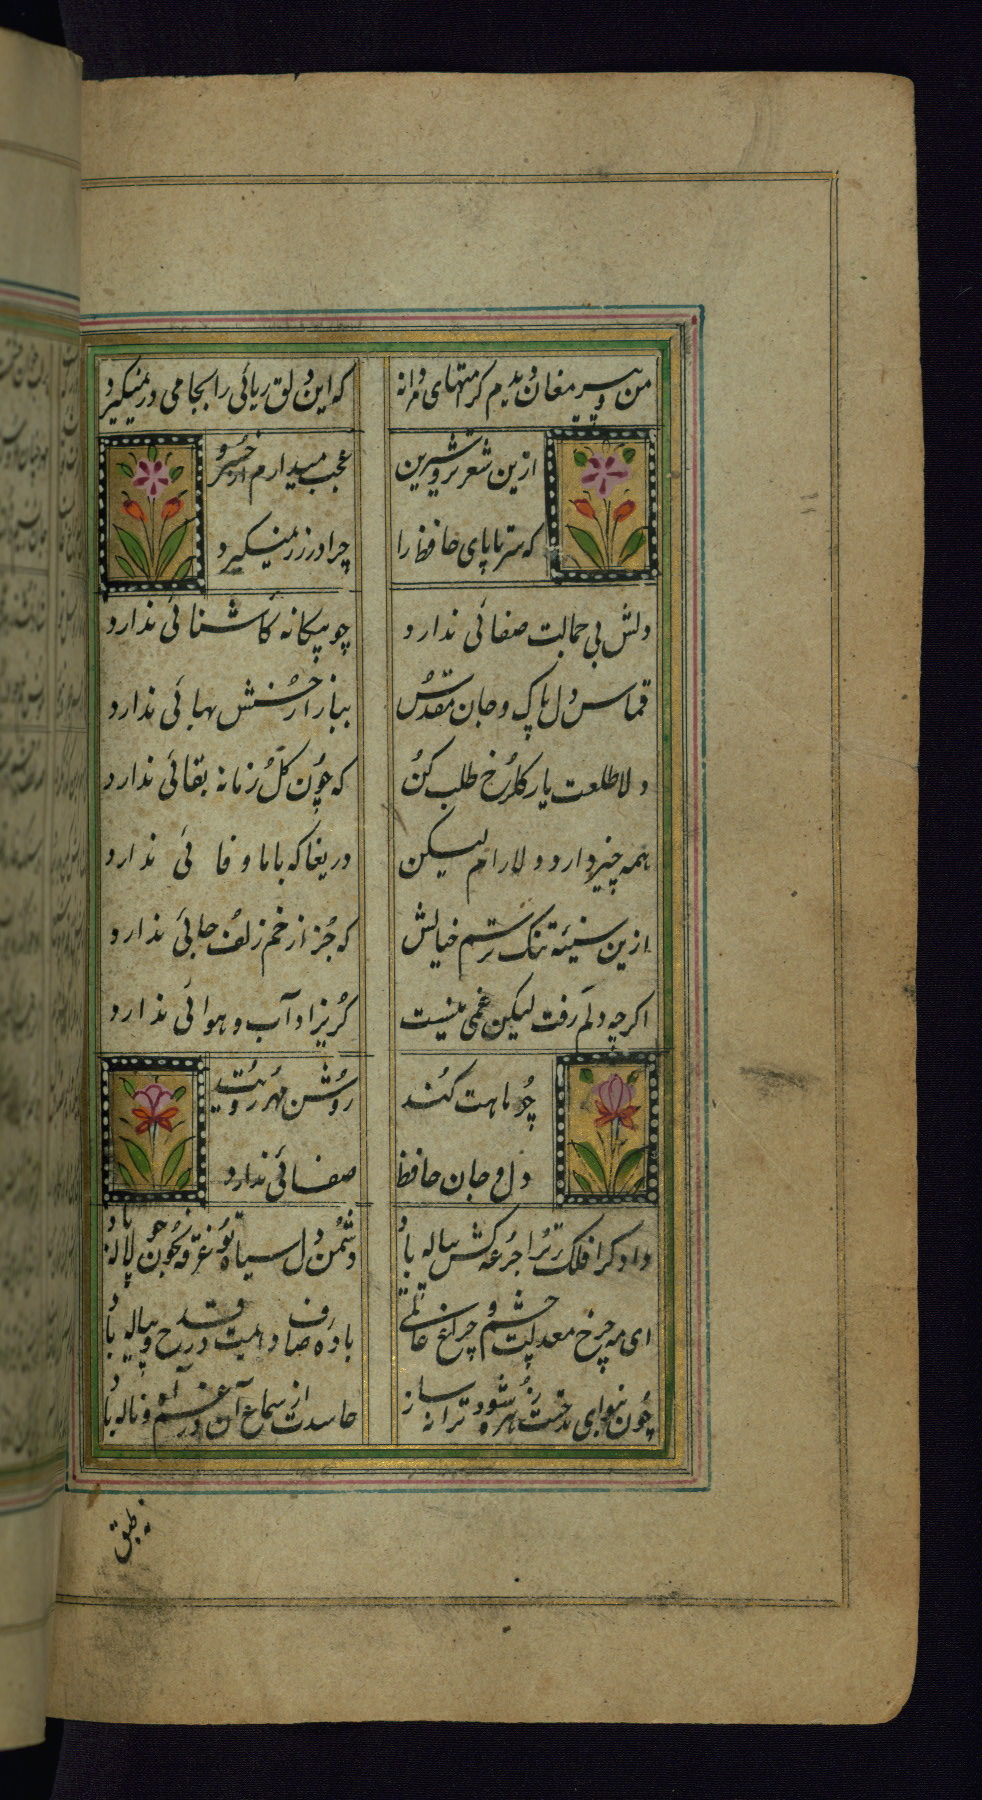 من و پیر مغان دیدم کرامتهای مردانه
که این دلق ریائی را بجامی در نمیکیرد
ازین شعر تر و شیرین
عجب میدارم از خسرو
که سرتاپای حافظ را
چرا در زر نمیکیرد
دلش بی جمالت صفائی ندارد
چو بیکانه کاشنائی ندارد
قماس دل پاک و جان مقدس
ببازار حسنش بهائی ندارد
دلا طلعت یار کلرخ طلب کن
که چون کل زمانه بقائی ندارد
همه چیز دارد دلارام لیکن
دریغا که باما وفائی ندارد
ازین سینٔه تنک ترسم خیالش
که جز از خم زلف جائی ندارد
اکرچه دلم رفت لیکن غمی نیست
آب و هوائی ندارد
چو ماهت کند
روشن مهر رویت
دل و جان حافظ
صفائی ندارد
دادکرا فلک ترا جرعه کش پیاله باد
دشمن دل سیاه تو غرقه بخون چو لاله باد
ای مه چرخ معدلت چشم و چراغ عالمی
باده صاف دایمت در قدح و پیاله باد
چون بنوای مدحتت زهره شود ترانه ساز
حاسدت از سماع آن در غم آه و ناله باد
نه طبق